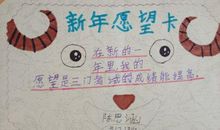 新年愿望卡
在新的一
年里我的
愿望是三门考试的成绩能提高。
陈思涵